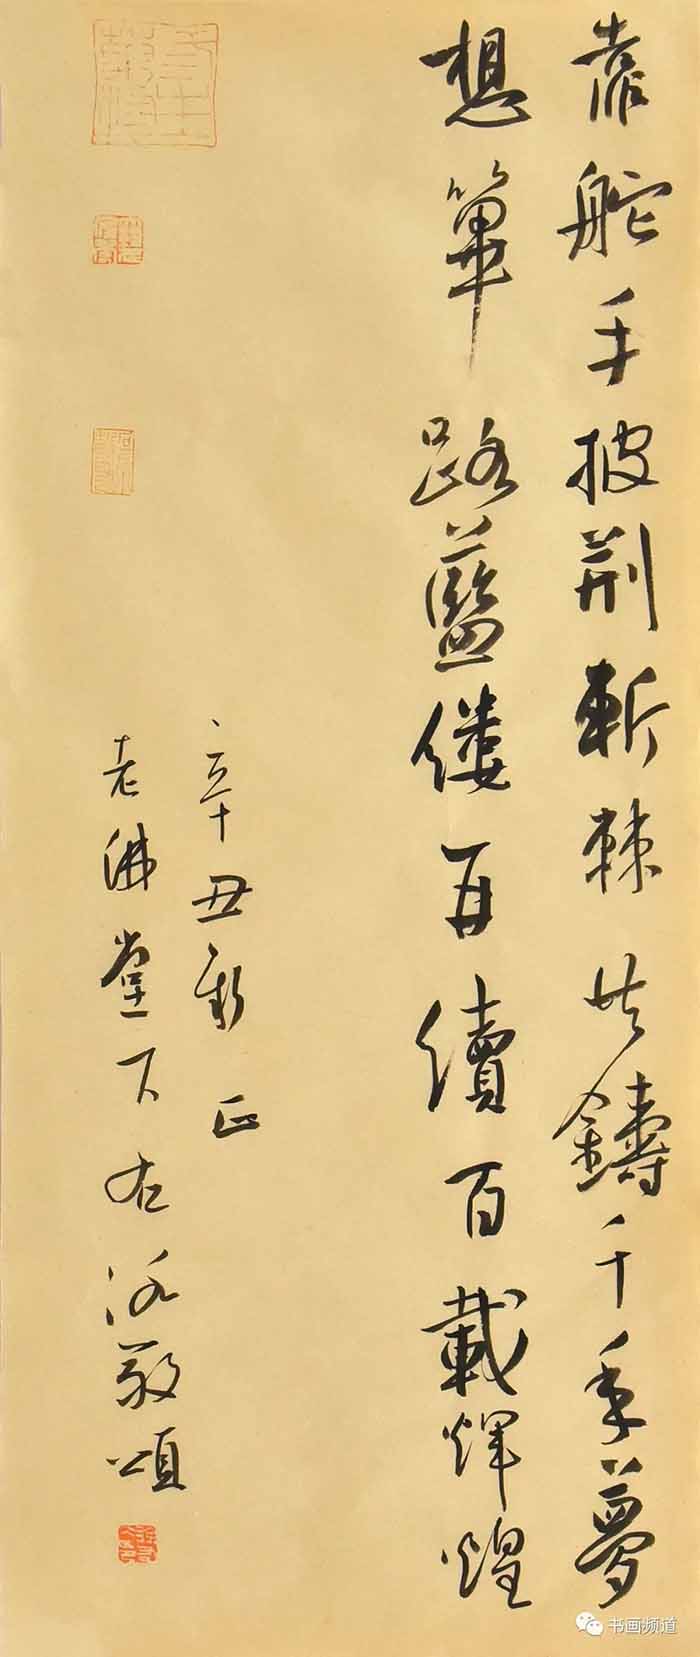 靠舵手披荆斩棘共鑄千年夢
想篳路藍縷再續百載輝煌
辛丑新正
老佛堂下右洛敬頌
书画频道